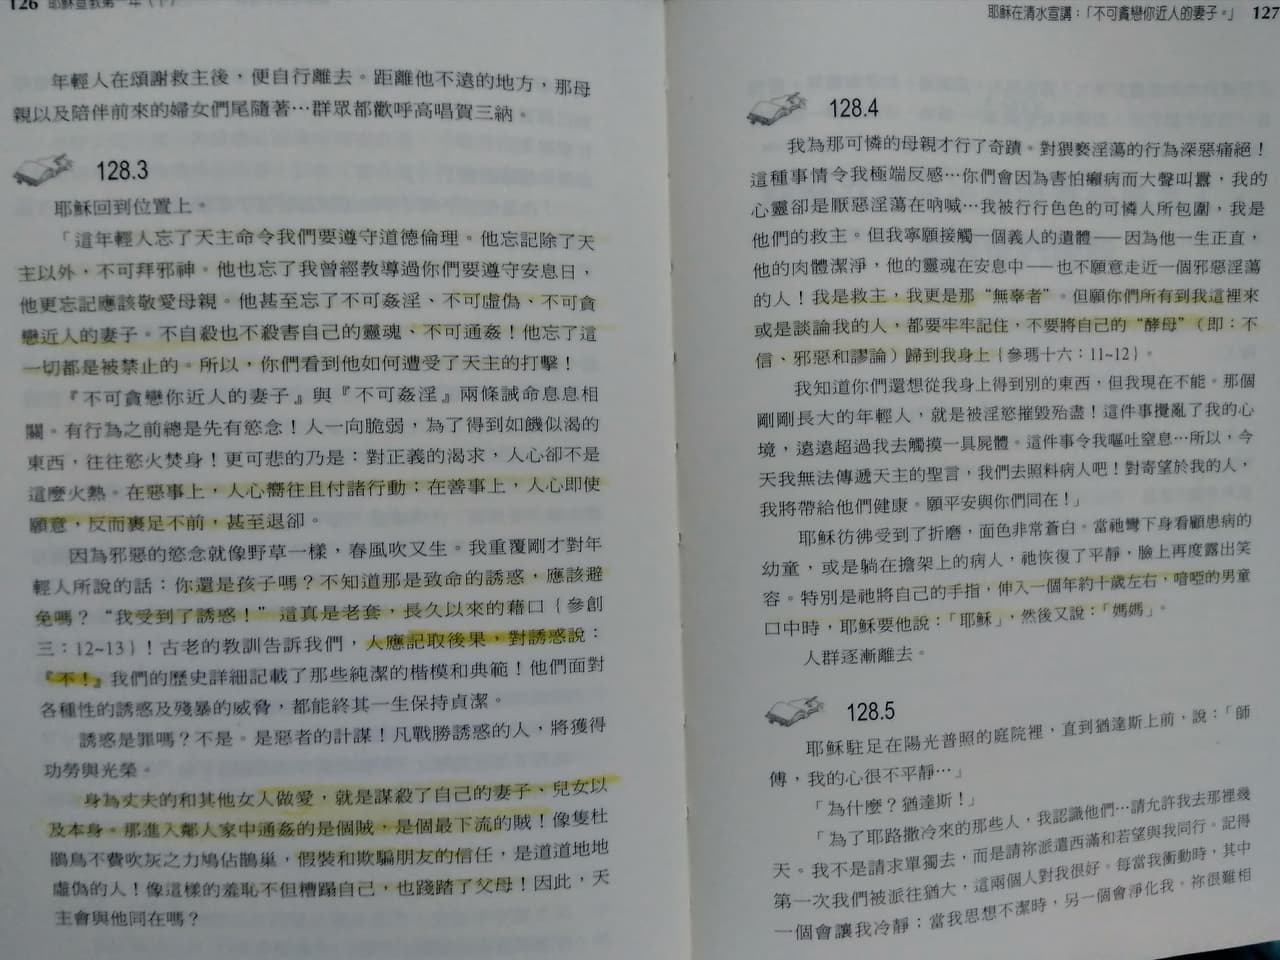 126 耶穌宣教第一年（下）
年輕人在頌謝救主後，便自行離去。距離他不遠的地方，那母
親以及陪伴前來的婦女們尾隨著…群眾都歡呼高唱賀三納。
128.3
耶穌回到位置上。
「這年輕人忘了天主命令我們要遵守道德倫理。他忘記除了天
主以外，不可拜邪神。他也忘了我曾經教導過你們要遵守安息日，
他更忘記應該敬愛母親。他甚至忘了不可姦淫、不可虛偽、不可貪
戀近人的妻子。不自殺也不殺害自己的靈魂、不可通姦！他忘了這
一切都是被禁止的。所以，你們看到他如何遭受了天主的打擊！
『不可貪戀你近人的妻子』與『不可姦淫』兩條誡命息息相
關。有行為之前總是先有慾念！人一向脆弱，為了得到如饑似渴的
東西，往往慾火焚身！更可悲的乃是：對正義的渴求，人心卻不是
這麼火熱。在惡事上，人心嚮往且付諸行動；在善事上，人心即使
願意，反而裹足不前，甚至退卻。
因為邪惡的慾念就像野草一樣，春風吹又生。我重覆剛才對年
輕人所說的話：你還是孩子嗎？不知道那是致命的誘惑，應該避
免嗎？“我受到了誘惑！”這真是老套，長久以來的藉口﹝參創
三：12~13﹞！古老的教訓告訴我們，人應記取後果，對誘惑說：
『不！』我們的歷史詳細記載了那些純潔的楷模和典範！他們面對
各種性的誘惑及殘暴的威脅，都能終其一生保持貞潔。
誘惑是罪嗎？不是。是惡者的計謀！凡戰勝誘惑的人，將獲得
功勞與光榮。
身為丈夫的和其他女人做愛，就是謀殺了自己的妻子、兒女以
及本身。那進入鄰人家中通姦的是個賊，是個最下流的賊！像隻杜
鵑鳥不費吹灰之力鳩佔鵲巢，假裝和欺騙朋友的信任，是道道地地
虛偽的人！像這樣的羞恥不但糟蹋自己，也踐踏了父母！因此，天
主會與他同在嗎？
耶穌在清水宣講：「不可貪戀你近人的妻子。」 127
128.4
我為那可憐的母親才行了奇蹟。對猥褻淫蕩的行為深惡痛絕！
這種事情令我極端反感…你們會因為害怕癩病而大聲叫囂，我的
心靈卻是厭惡淫蕩在吶喊…我被行行色色的可憐人所包圍，我是
他們的救主。但我寧願接觸一個義人的遺體——因為他一生正直，
他的肉體潔淨，他的靈魂在安息中——也不願意走近一個邪惡淫蕩
的人！我是救主，我更是那“無辜者”。但願你們所有到我這裡來
或是談論我的人，都要牢牢記住，不要將自己的“酵母”（即：不
信、邪惡和謬論）歸到我身上﹝參瑪十六：11~12﹞。
我知道你們還想從我身上得到別的東西，但我現在不能。那個
剛剛長大的年輕人，就是被淫慾摧毀殆盡！這件事攪亂了我的心
境，遠遠超過我去觸摸一具屍體。這件事令我嘔吐窒息…所以，今
天我無法傳遞天主的聖言，我們去照料病人吧！對寄望於我的人，
我將帶給他們健康。願平安與你們同在！」
耶穌彷彿受到了折磨，面色非常蒼白。當祂彎下身看顧患病的
幼童，或是躺在擔架上的病人，祂恢復了平靜，臉上再度露出笑
容。特別是祂將自己的手指，伸入一個年約十歲左右，喑啞的男童
口中時，耶穌要他說：「耶穌」，然後又說：「媽媽」。
人群逐漸離去。
128.5
耶穌駐足在陽光普照的庭院裡，直到猶達斯上前，說：「師
傅，我的心很不平靜…」
「為什麼？猶達斯！」
「為了耶路撒冷來的那些人，我認識他們…請允許我去那裡幾
天。我不是請求單獨去，而是請祢派遣西滿和若望與我同行。記得
第一次我們被派往猶大，這兩個人對我很好。每當我衝動時，其中
一個會讓我冷靜；當我思想不潔時，另一個會淨化我。祢很難相